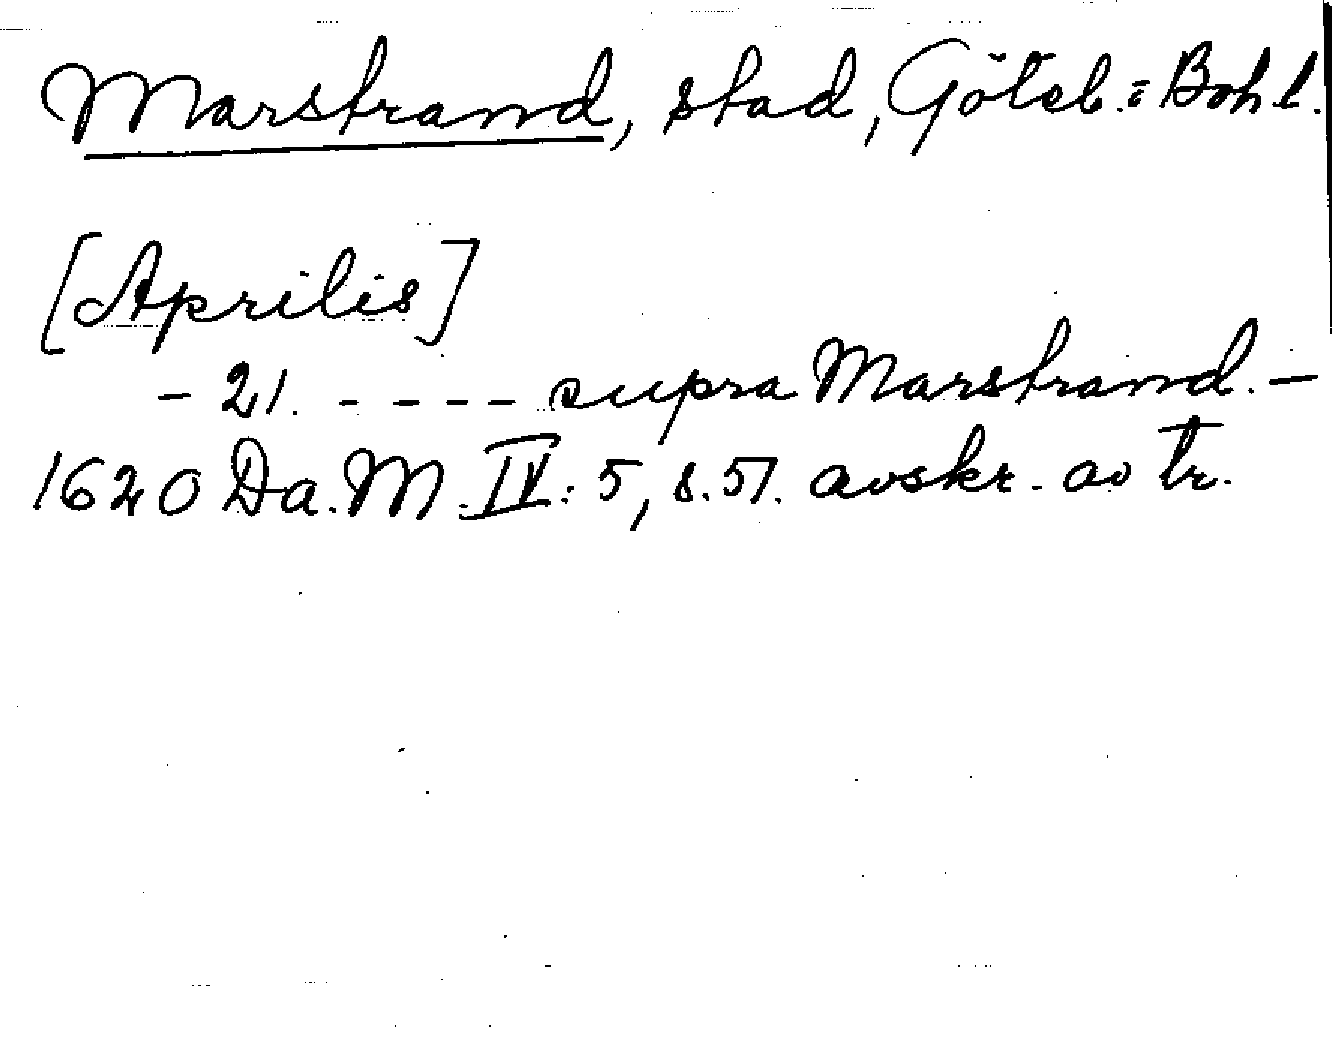 Marstrand, stad, Göteb.= Bohl.
[Aprilis]
- 21. - - - - supra Marstrand. -
1620 Da. M. IV: 5, s. 57. avskr. av tr.